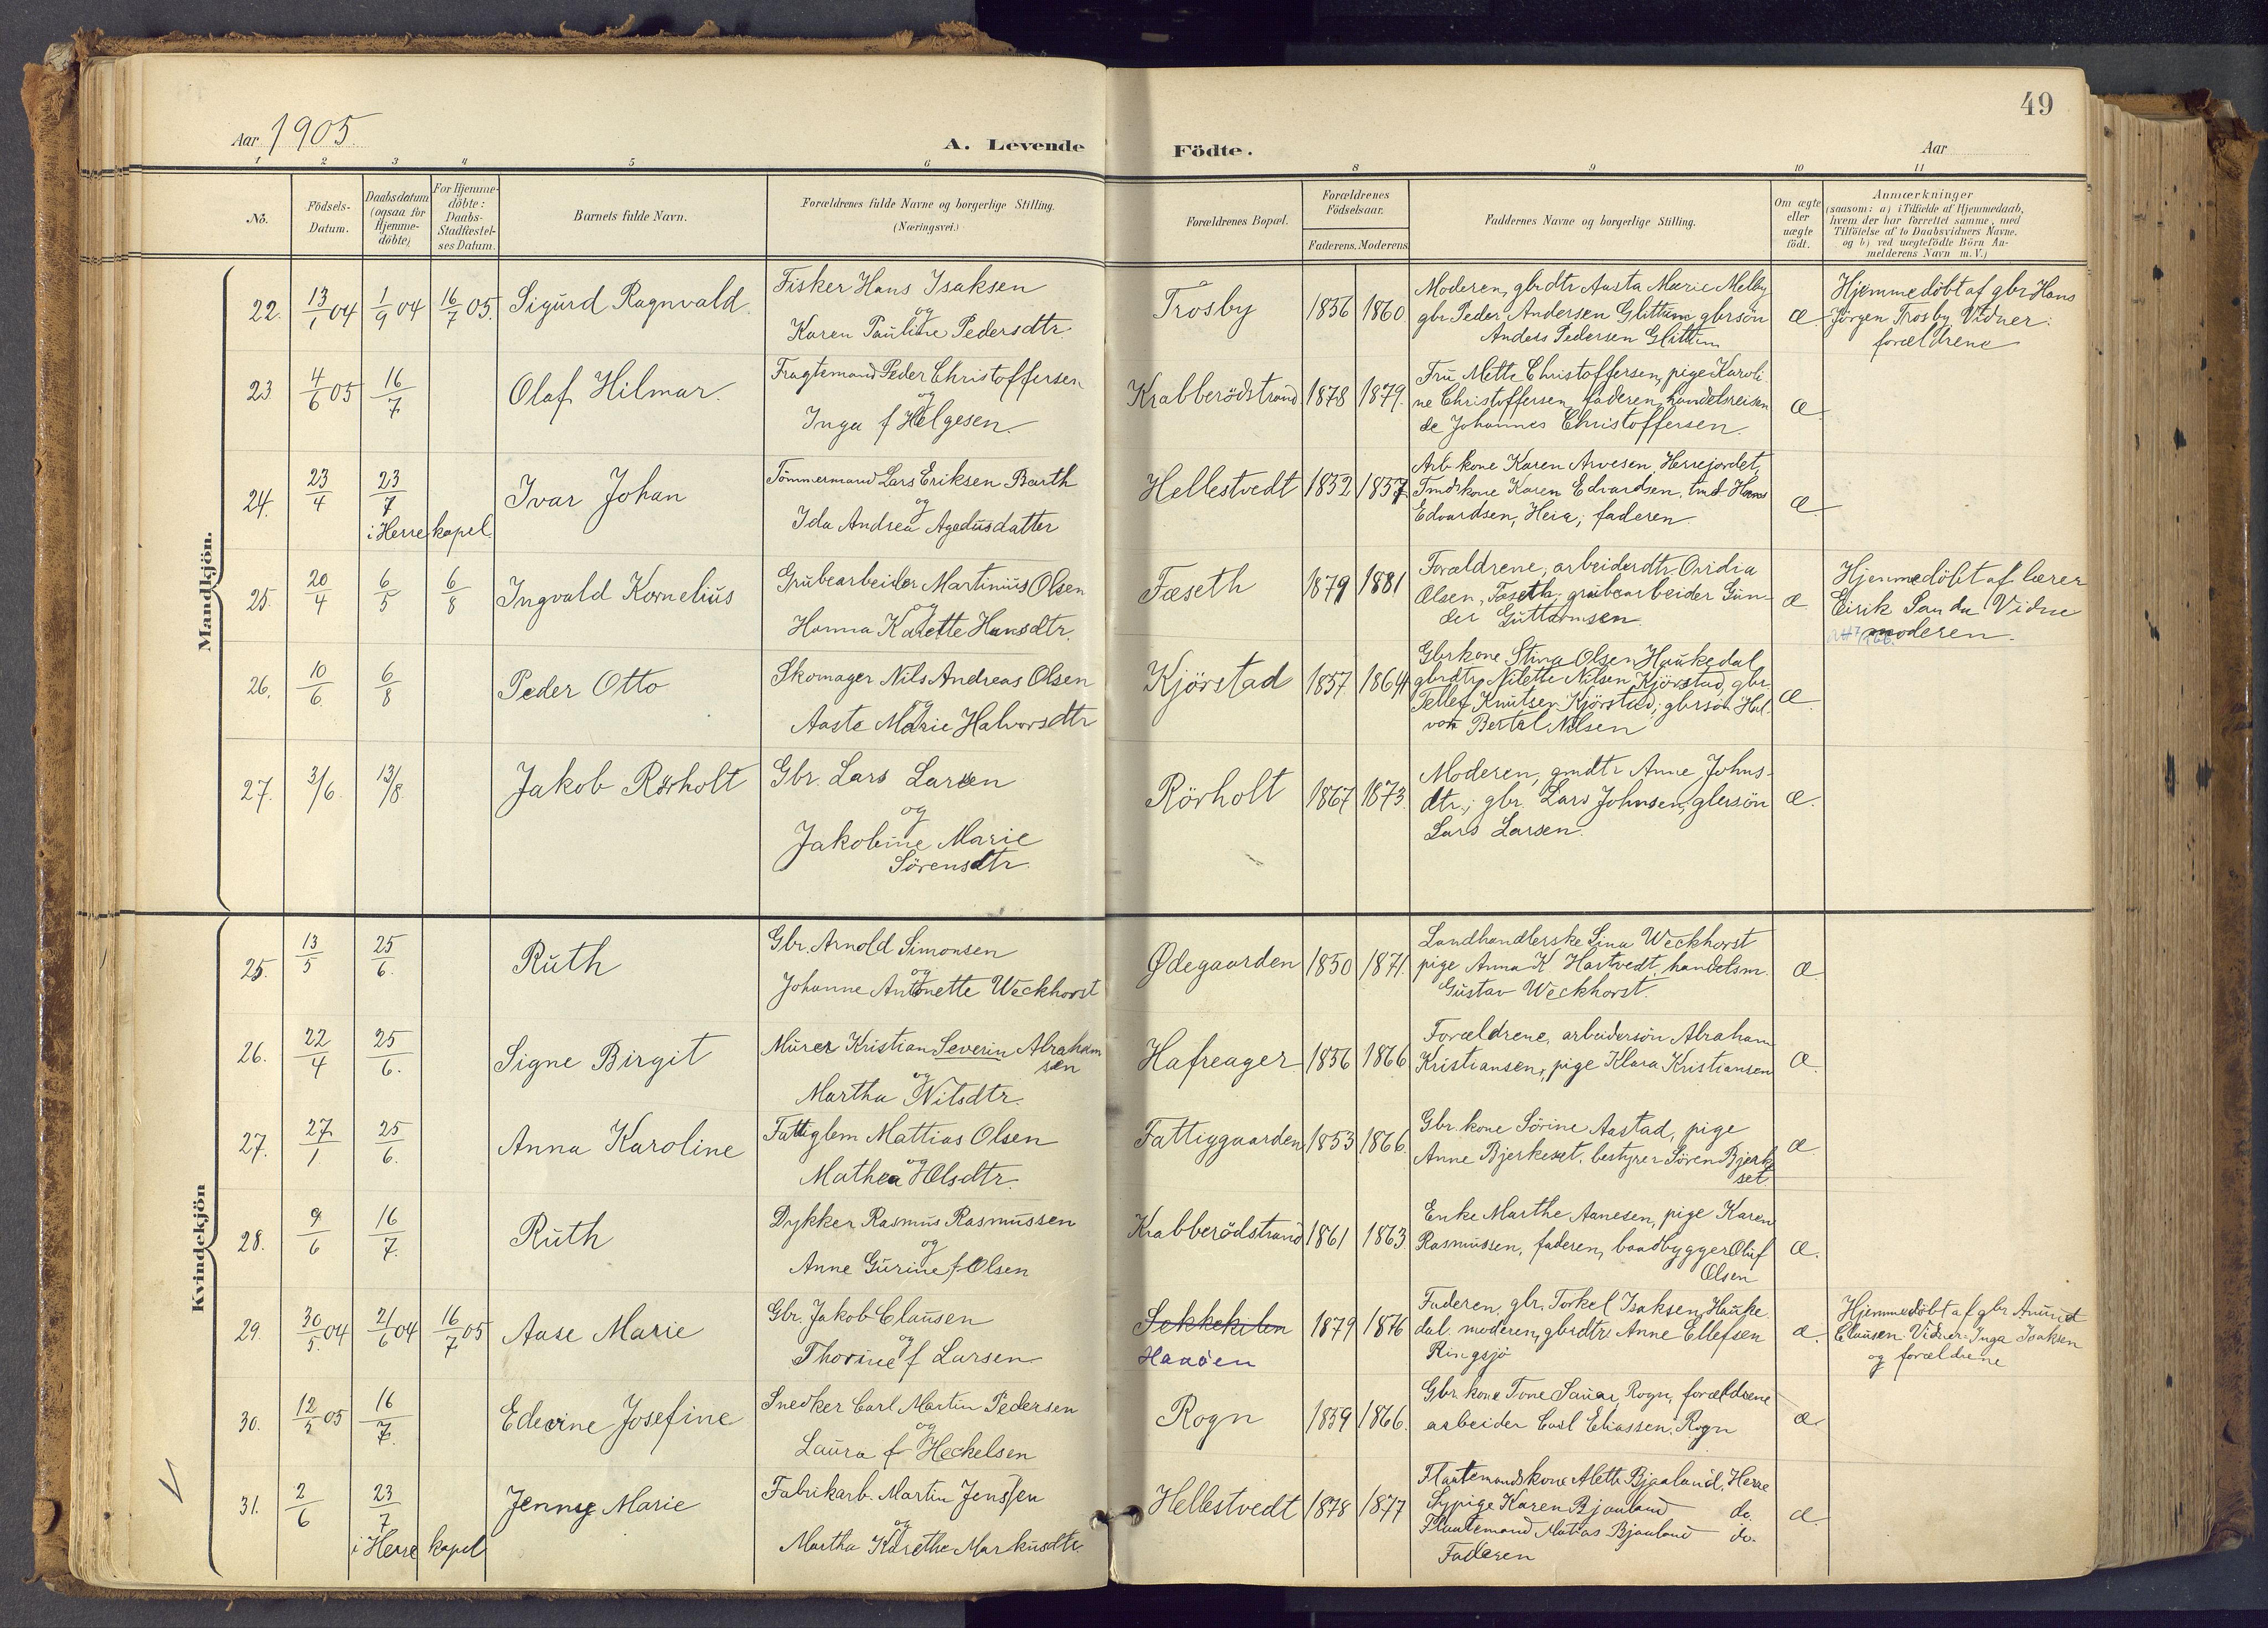 49
Aar 1905.
A. Levende Födte.
Aar
1 2 3 4 5 6 8 9 10 11
No.
Födsels-Datum.
Daabsdatum (ogsaa for Hjemme-döbte)
For Hjemme-döbte: Daabs-Stadfæstel-ses Datum.
Barnets fulde Navn.
Forældrenes fulde Navne og borgerlige Stilling. (Næringsvei.)
Forældrenes Bopæl.
Forældrenes Födselsaar.
Faderens. Moderens
Faddernes Navne og borgerlige Stilling.
Om ægte eller uægte födt.
Anmærkninger
(saasom: a) i Tilfælde af Hjemmedaab,
hvem der har forrettet samme, med
Tilföielse af to Daabsvidners Navne,
og b) ved uægtefödte Börn An-
melderens Navn m. V.)
Mandkjön.
22. 13/1 04 1/9 04 16/7 05. Sigurd Ragnvald.
Fisker Hans Isaksen
og
Karen Pauline Pedersdtr.
Trosby 1856 1860
Moderen, gbrdtr Aasta Marie Melby
gbr Peder Andersen Glittum, gbrsön
Anders Pedersen Glittum
æ.
Hjemmedöbt af gbr Hans
Jörgen Trosby. Vidner:
forældrene
23 4/6 05 16/7 Olaf Hilmar.
Fragtemand Peder Christoffersen
og
Inga f Helgesen
Krabberödstrand 1878 1879.
Fru Mette Christoffersen, pige Karoli
ne Christoffersen, faderen, handelsreisen
de Johannes Christoffersen.
æ
24. 23/4 23/7 Ivar Johan
i Herre kapel.
Tömmermand Lars Eriksen Barth
og
Ida Andrea Agedusdatter
Hellestvedt 1852 1857
Arb kone Karen Arvesen, Herrejordet,
Tmdskone Karen Edvardsen, tmd Hans
Edvardsen, Heia; faderen.
æ
25. 20/4 6/5 6/8 Ingvald Kornelius
Grubearbeider Martinius Olsen
og
Hanna Karette Hansdtr.
Fæseth 1879 1881
Forældrene, arbeiderdtr. Ovidia
Olsen, Fæseth, grubearbeider Gun-
der Guttormsen.
æ
Hjemmedöbt af lærer
Eirik Sanda. Vidne
moderen.
26. 10/6 6/8 Peder Otto
Skomager Nils Andreas Olsen
og
Aaste Marie Halvorsdtr
Kjörstad 1857 1864
Gbrkone Stina Olsen Haukedal
gbrdtr Nilette Nilsen Kjörstad, gbr
Tellef Knutsen Kjörstad; gbrsön Hal
vor Bertel Nilsen
æ.
27. 3/6. 13/8 Jakob Rörholt
Gbr. Lars Larsen
og
Jakobine Marie
Sörensdtr.
Rörholt 1867 1873.
Moderen, gmdtr Anne Johns-
dtr.; gbr. Lars Johnsen, gbrsön
Lars Larsen.
æ.
Kvindekjön
25. 13/5 25/6. Ruth
Gbr. Arnold Simonsen
og
Johanne Antonette Weckhorst
Ødegaarden 1850 1871.
Landhandlerske Lina Weckhorst
pige Anna K Hartvedt, handelsm.
Gustav Weckhorst.
æ
26. 22/4 25/6. Signe Birgit
Murer Kristian Severin Abraham
sen
og
Martha Nilsdtr.
Hafreager 1856 1866
Forældrene, arbeidersön Abraham
Kristiansen, pige Klara Kristiansen
æ.
27. 27/1. 25/6. Anna Karoline
Fattiglem Mattias Olsen
og
Mathea Olsdtr.
Fattiggaarden 1853 1866.
Gbr. kone Sörine Aastad, pige
Anne Bjerkeset, bestyrer Sören Bjerke
set
æ
28. 9/6 16/7. Ruth
Dykker Rasmus Rasmussen
og
Anne Gurine f Olsen
Krabberödstrand 1861 1863
Enke Marthe Aanesen, pige Karen
Rasmussen, faderen, baadbygger Oluf
Olsen
æ.
29. 30/5. 04 21/6 04 16/7 05 Aase Marie
Gbr. Jakob Clausen
og
Thorine f Larsen
Sekkekilen
Haaöen
1879 1876
Faderen, gbr. Torkel Isaksen Hauke
dal. moderen, gbrdtr Anne Ellefsen
Ringsjö
æ.
Hjemmedöbt af gbr Amund
Clausen. Vidner: Inga Isaksen
og forældrene
30. 12/5 05 16/7. Edevine Josefine
Snedker Carl Martin Pedersen
og
Laura f Heckelsen
Rogn 1859 1866.
Gbr. kone Tone Sauar, Rogn, forældrene
arbeider Carl Eliassen, Rogn
æ
31. 2/6 23/7 Jenny Marie
i Herre kapel
Fabrikarb. Martin Jenssen
og
Martha Karethe Markusdtr.
Hellestvedt 1878 1877
Flaatemandskone Aleth Bjaaland, Herre
Sypige Karen Bjaaland do.
Flaatemand Matias Bjaaland do.
Faderen
æ.